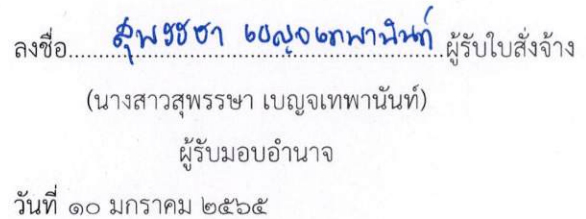 ลงชื่อ.....สุพรรษา เบญจเทพานันท์.....ผู้รับใบสั่งจ้าง
(นางสาวสุพรรษา เบญจเทพานันท์)
ผู้รับมอบอำนาจ
วันที่ ๑๐ มกราคม ๒๕๖๕